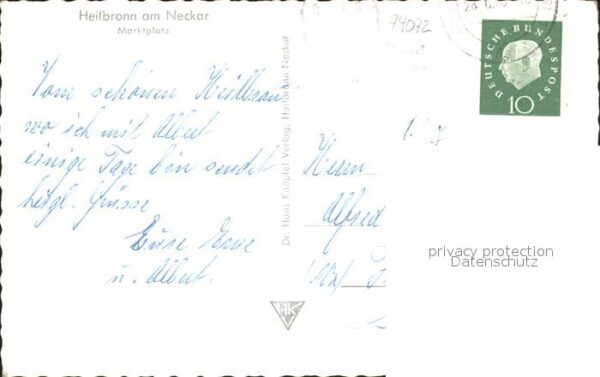 Heilbronn am Neckar
Marktplatz
74072
DEUTSCHE BUNDESPOST
10
Vom schönen Heilbronn
wo ich mit Albert
einige Tage bin sendet
herzl. Grüsse
Eure
u. Albert.
Dr. Hans Knäpfel Verlag, Heilbronn Neckar
Herrn
Alfred
privacy protection
Datenschutz